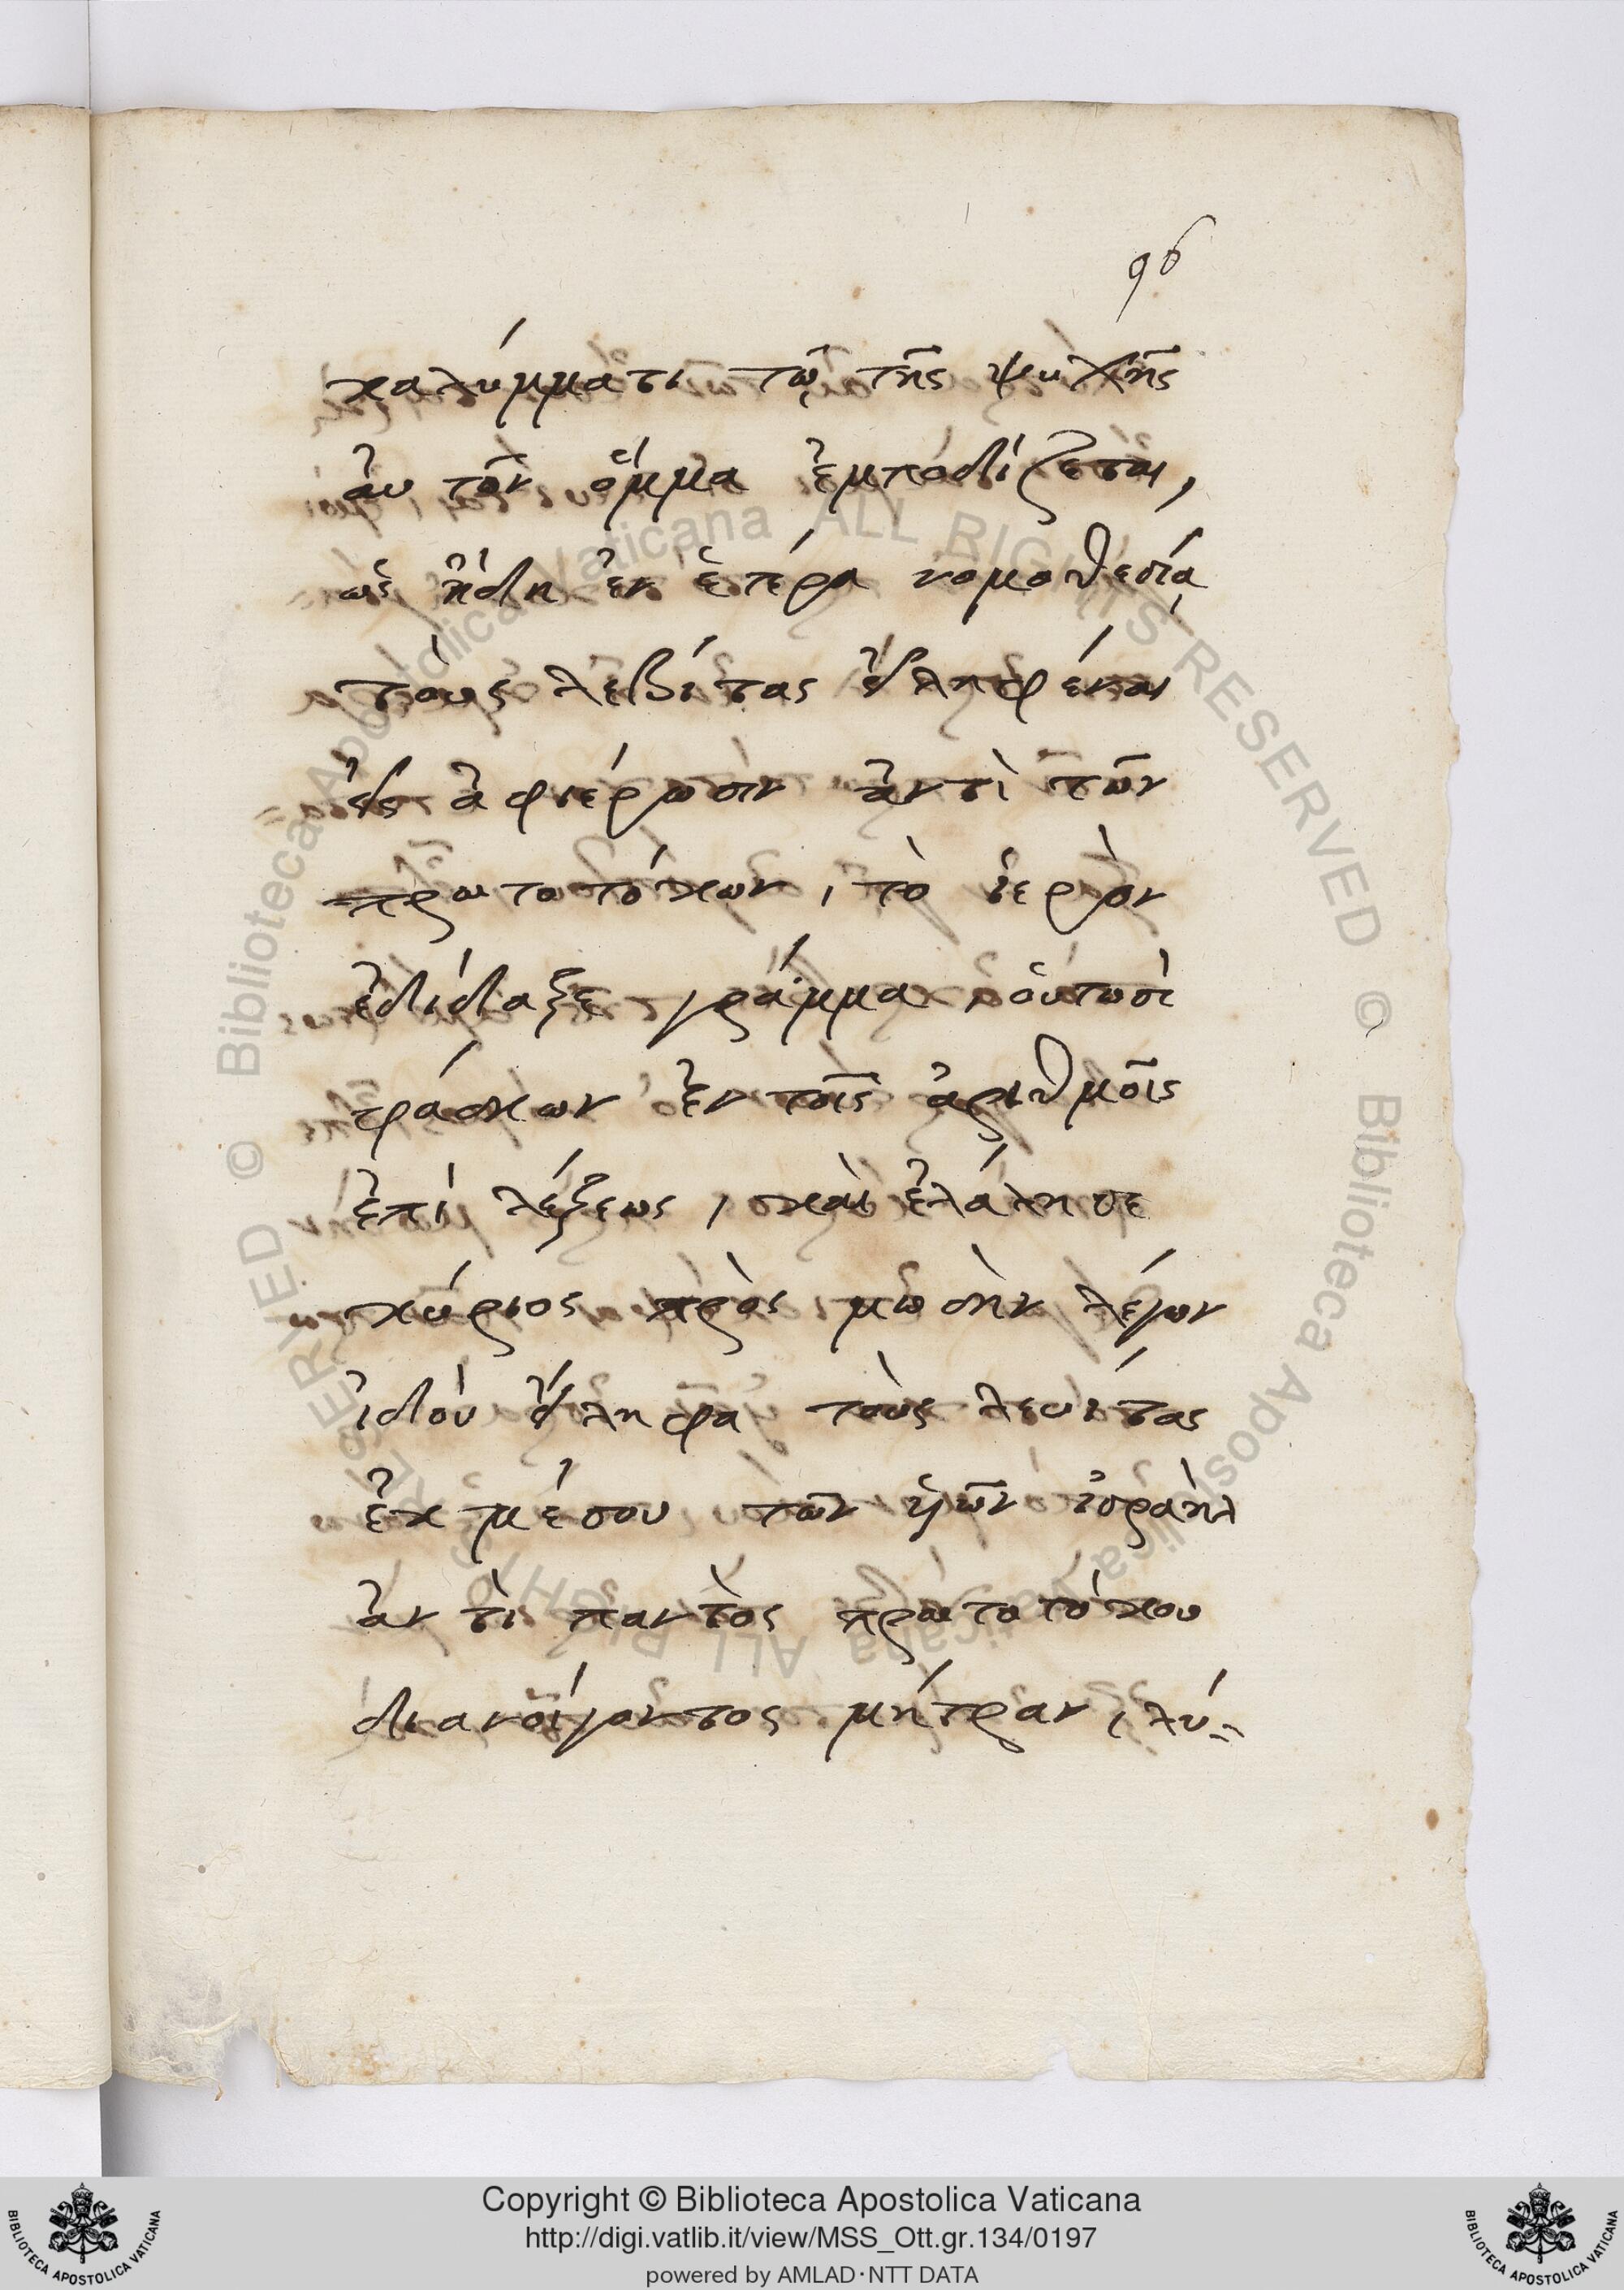 96
καλύμματι τῷ τῆς ψυχῆς
αὐτῶν ὄμμα ἐμποδίζεται,
ὡς ἤδη ἐν ἑτέρα νομοθεσία
τοὺς λεβίτας εἰληφέναι
εἰς ἀφιέρωσιν ἀντὶ τῶν
πρωτοτόκων, τὸ ἱερὸν
ἐδίδαξε γράμμα, οὑτωσὶ
φράσκων ἐν τοῖς ἀριθμοῖς
ἐπὶ λέξεως, καὶ ἐλάλησε
κύριος πρὸς μωσὴν λέγων
ἰδοὺ εἴληφα τοὺς λευίτας
ἐκ μέσου τῶν ὑῶν ἰσραὴλ
ἀντὶ παντὸς πρωτοτόκου
διανοίγοντος μήτραν, λύ-
Copyright © Biblioteca Apostolica Vaticana
http://digi.vatlib.it/view/MSS_Ott.gr.134/0197
powered by AMLAD·NTT DATA
BIBLIOTECA APOSTOLICA VATICANA
BIBLIOTECA APOSTOLICA VATICANA
© Biblioteca Apostolica Vaticana ALL RIGHTS RESERVED
© Biblioteca Apostolica Vaticana ALL RIGHTS RESERVED